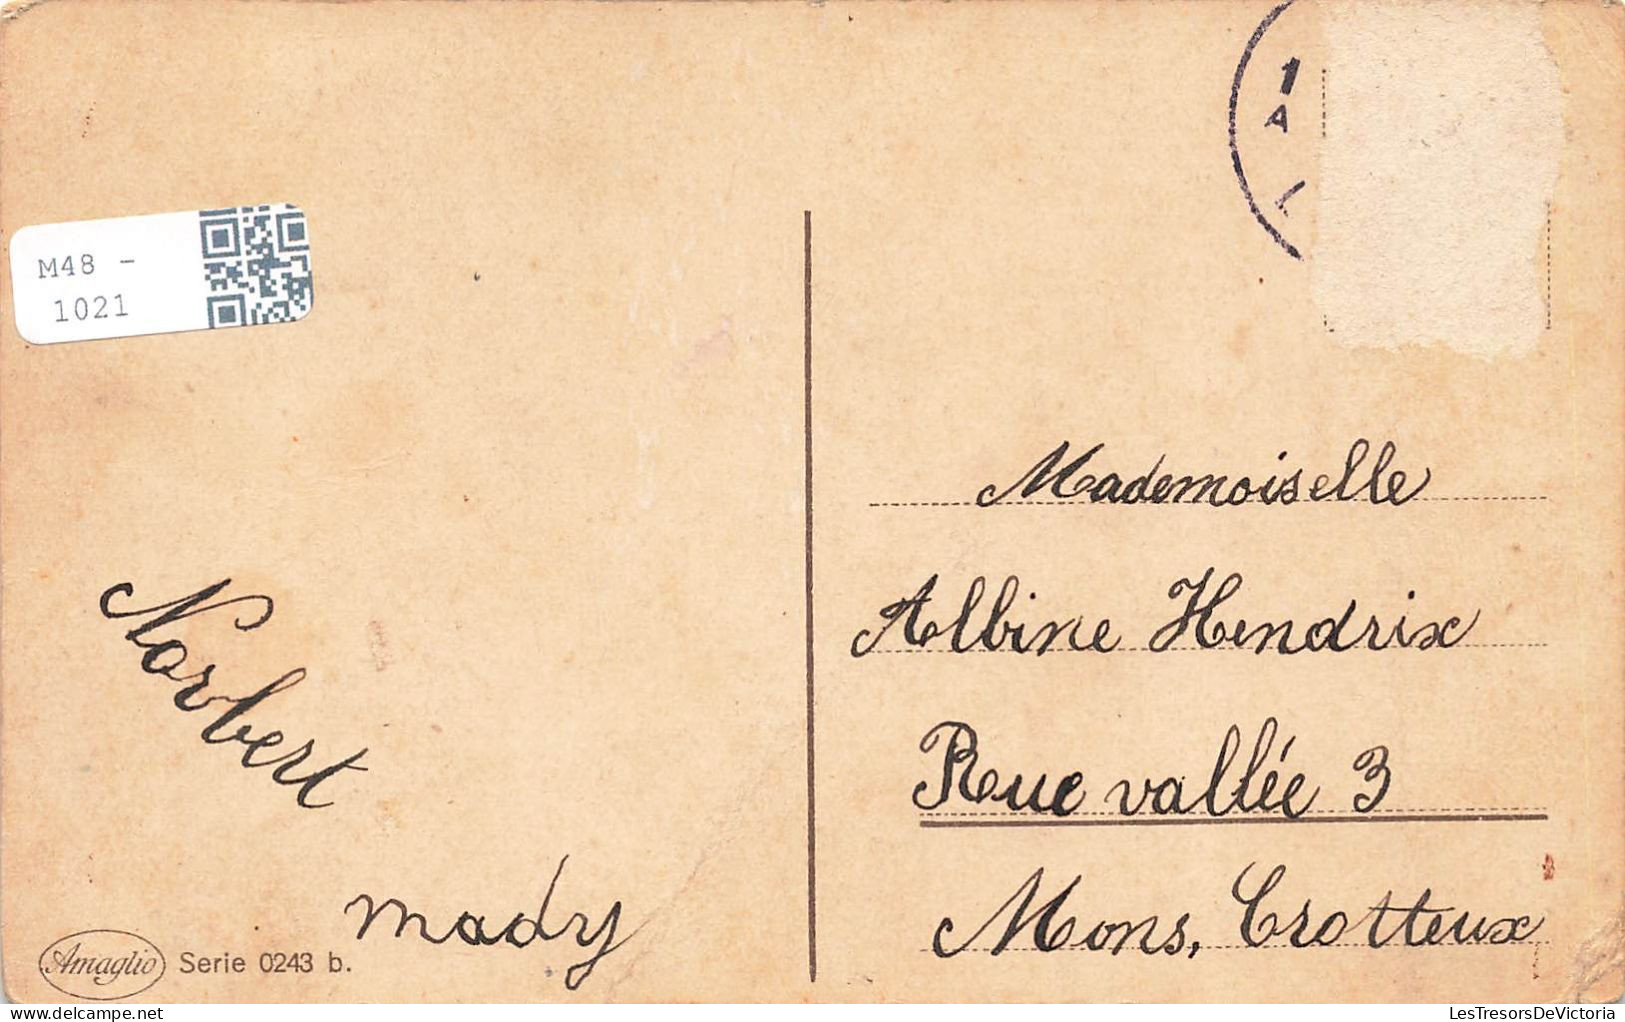 1
A
L
M48 -
1021
Mademoiselle
Albine Hendrix
Rue vallée 3
Mons, Crotteux
Norbert
mady
Amaglio Serie 0243 b.
www.delcampe.net
LesTresorsDeVictoria